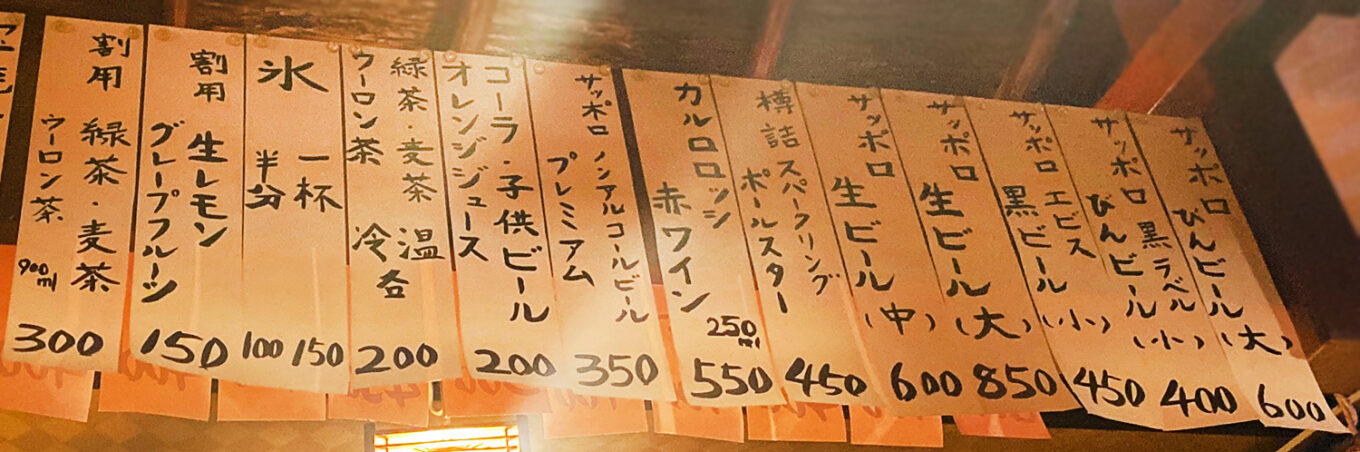 サッポロ
びんビール(大)
600
サッポロ 黒ラベル
びんビール(小)
400
サッポロ エビス
黒ビール(小)
450
サッポロ
生ビール(大)
850
サッポロ
生ビール(中)
600
樽詰スパークリング
ポールスター
450
カルロロッシ
赤ワイン
250ml
550
サッポロノンアルコールビール
プレミアム
350
コーラ・子供ビール
オレンジジュース
200
緑茶・麦茶 温
ウーロン茶 冷
各
200
氷
一杯 150
半分 100
割用 生レモン
グレープフルーツ
150
割用 緑茶・麦茶
ウーロン茶 900ml
300